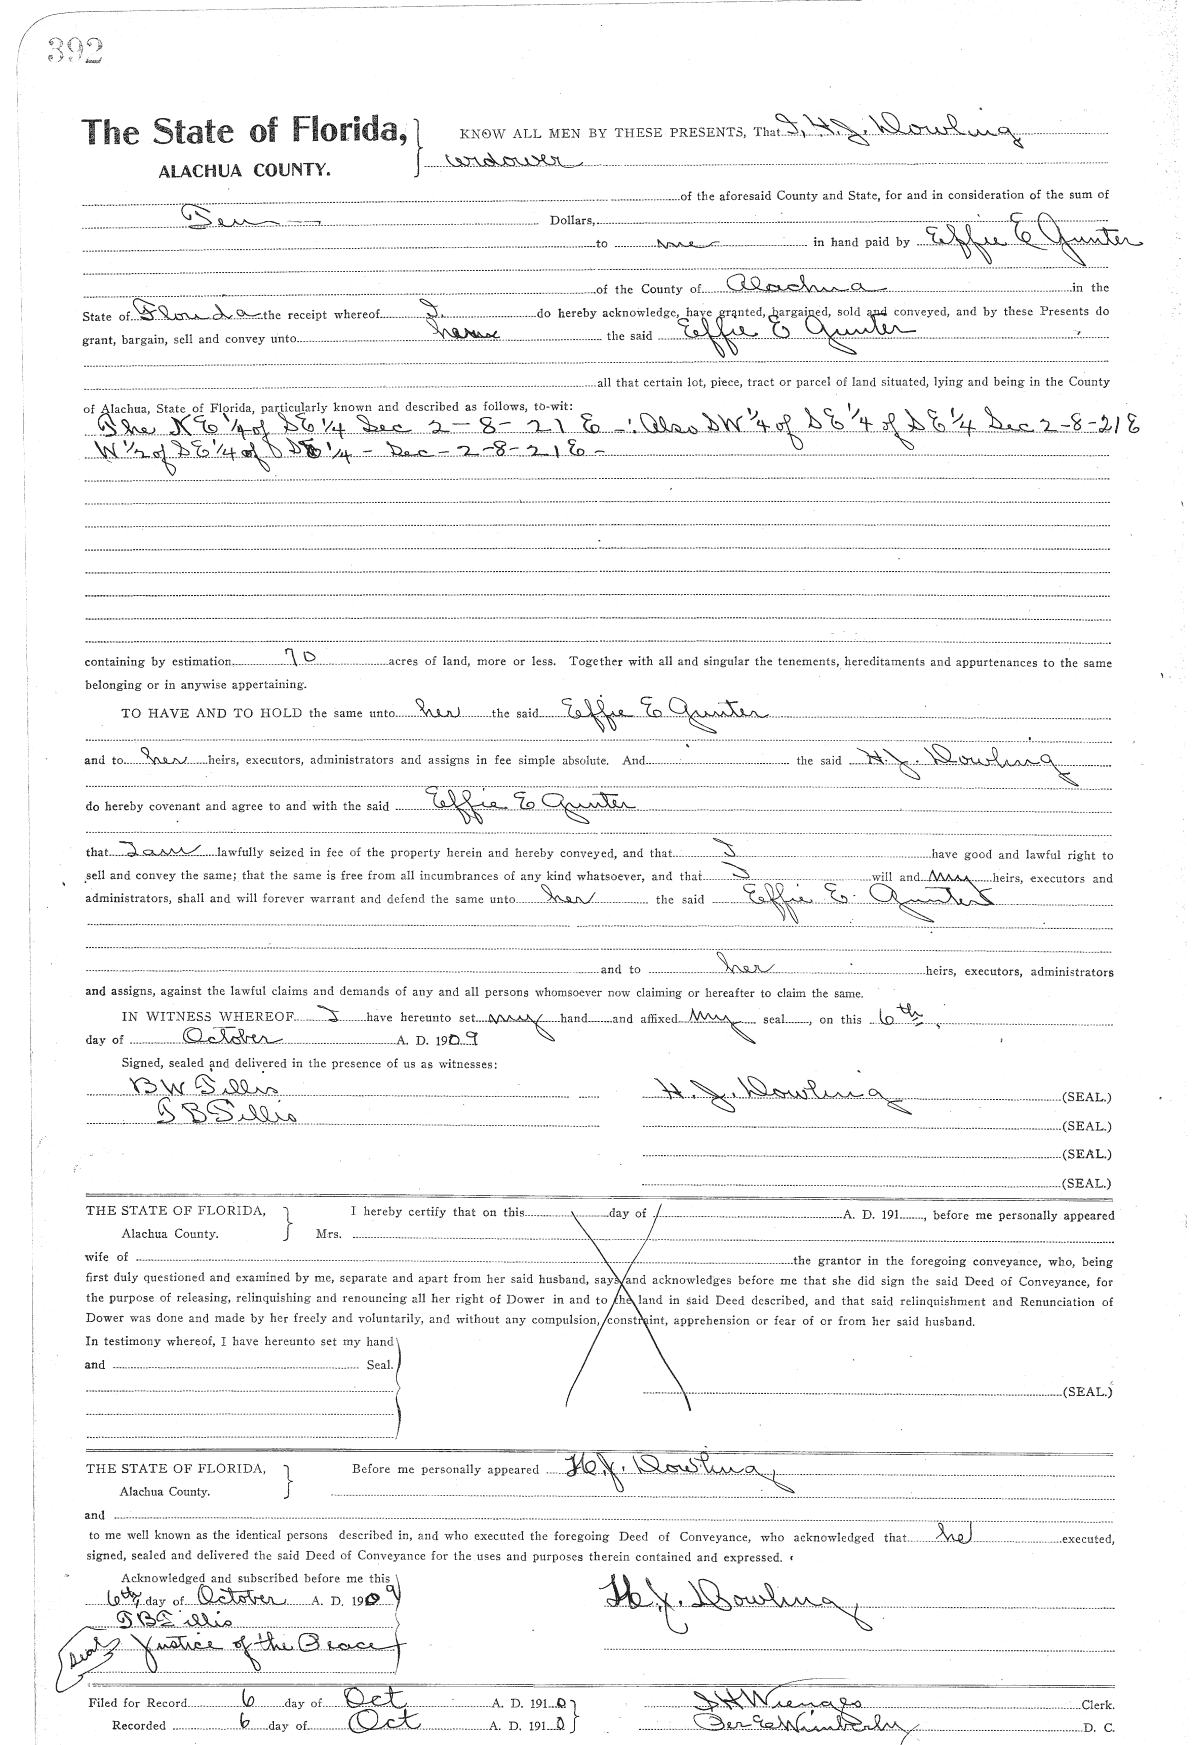 392
The State of Florida, KNOW ALL MEN BY THESE PRESENTS, That I, H. J. Dowling
ALACHUA COUNTY. widower
of the aforesaid County and State, for and in consideration of the sum of
Ten Dollars,
to me in hand paid by Effie E Gunter
of the County of Alachua in the
State of Florida the receipt whereof I do hereby acknowledge, have granted, bargained, sold and conveyed, and by these Presents do
grant, bargain, sell and convey unto the said Effie E Gunter
all that certain lot, piece, tract or parcel of land situated, lying and being in the County
of Alachua, State of Florida, particularly known and described as follows, to-wit:
The N E 1/4 of S E 1/4 Sec 2-8-21 E -: Also SW 1/4 of S E 1/4 of S E 1/4 Sec 2-8-21 E
W 1/2 of S E 1/4 of SE 1/4 - Sec - 2-8-21 E -
containing by estimation 70 acres of land, more or less. Together with all and singular the tenements, hereditaments and appurtenances to the same
belonging or in anywise appertaining.
TO HAVE AND TO HOLD the same unto her the said Effie E Gunter
and to her heirs, executors, administrators and assigns in fee simple absolute. And the said H. J. Dowling
do hereby covenant and agree to and with the said Effie E Gunter
that I am lawfully seized in fee of the property herein and hereby conveyed, and that I have good and lawful right to
sell and convey the same; that the same is free from all incumbrances of any kind whatsoever, and that I will and my heirs, executors and
administrators, shall and will forever warrant and defend the same unto her the said Effie E. Gunter
and to her heirs, executors, administrators
and assigns, against the lawful claims and demands of any and all persons whomsoever now claiming or hereafter to claim the same.
IN WITNESS WHEREOF I have hereunto set my hand and affixed my seal, on this 6th
day of October A. D. 1909
Signed, sealed and delivered in the presence of us as witnesses:
B W Tillis H. J. Dowling (SEAL.)
T B Tillis (SEAL.)
(SEAL.)
(SEAL.)
THE STATE OF FLORIDA, I hereby certify that on this day of A. D. 191, before me personally appeared
Alachua County. Mrs.
wife of the grantor in the foregoing conveyance, who, being
first duly questioned and examined by me, separate and apart from her said husband, says and acknowledges before me that she did sign the said Deed of Conveyance, for
the purpose of releasing, relinquishing and renouncing all her right of Dower in and to the land in said Deed described, and that said relinquishment and Renunciation of
Dower was done and made by her freely and voluntarily, and without any compulsion, constraint, apprehension or fear of or from her said husband.
In testimony whereof, I have hereunto set my hand
and Seal.
(SEAL.)
THE STATE OF FLORIDA, Before me personally appeared H. J. Dowling
Alachua County.
and
to me well known as the identical persons described in, and who executed the foregoing Deed of Conveyance, who acknowledged that he executed,
signed, sealed and delivered the said Deed of Conveyance for the uses and purposes therein contained and expressed.
Acknowledged and subscribed before me this
6th day of October A. D. 1909 H. J. Dowling
T B Tillis
Seal Justice of the Peace
Filed for Record 6 day of Oct A. D. 1910 S H Wienges Clerk.
Recorded 6 day of Oct A. D. 1910 Per E Wimberly D. C.